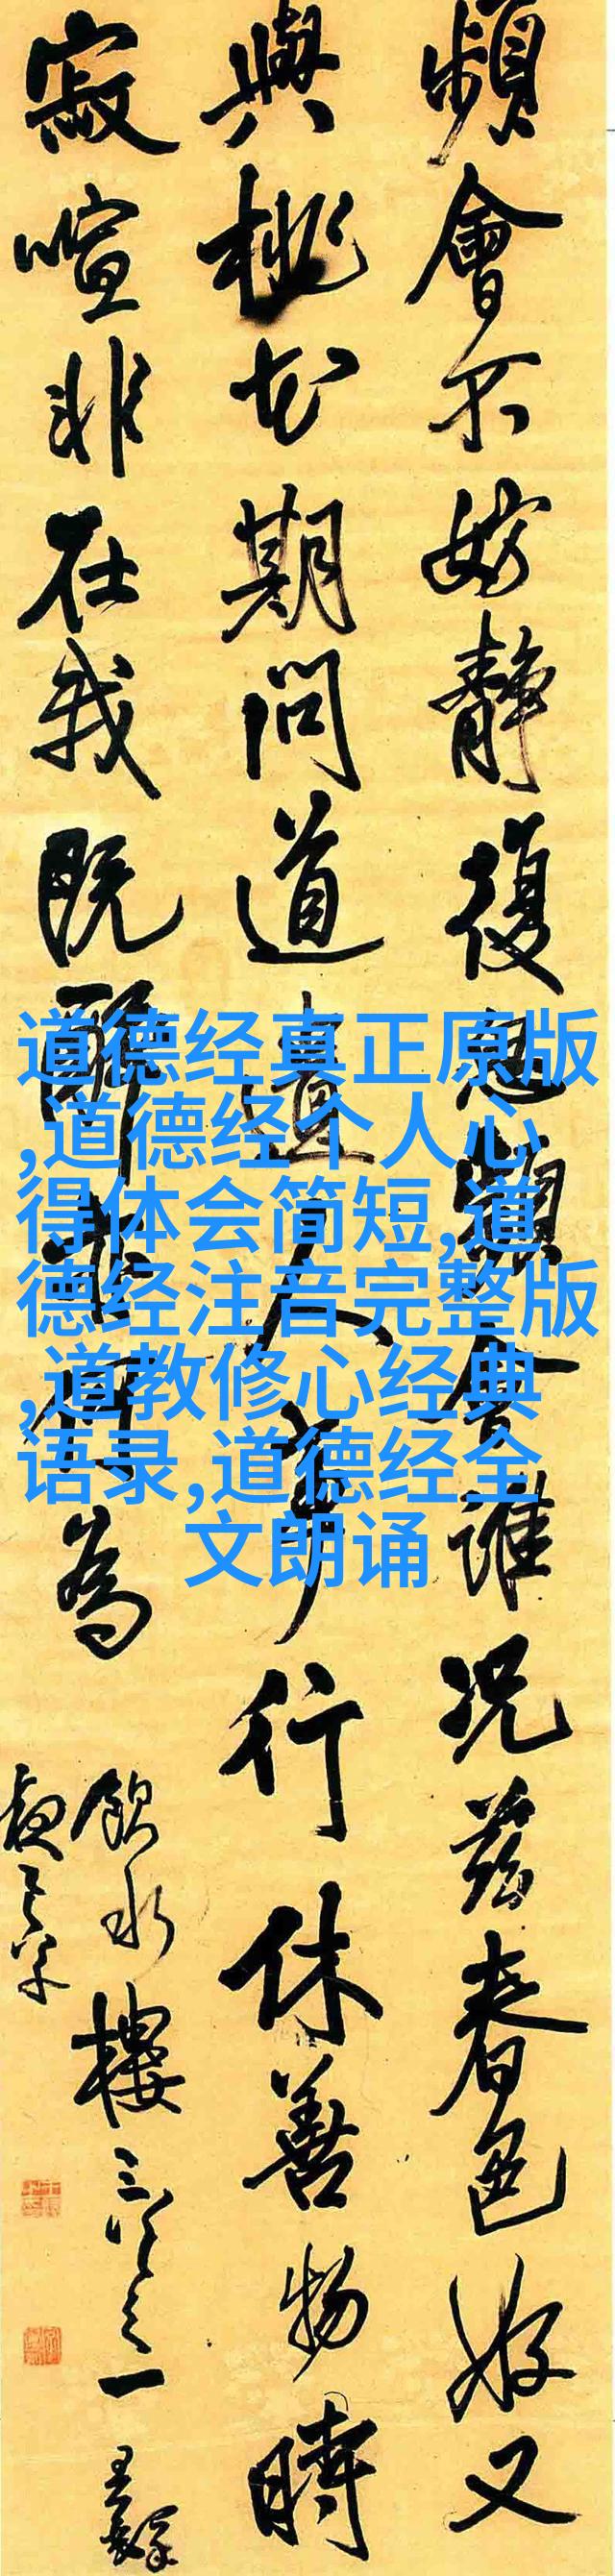 頻會不妨靜復思頻會誰況茲春色好又
與桃花期問道遣人來行休善物時
寂喧非在我既醉非何為
飲水樓三次之一
王鐸
道德经真正原版
,道德经个人心
得体会简短,道
德经注音完整版
,道教修心经典
语录,道德经全
文朗诵